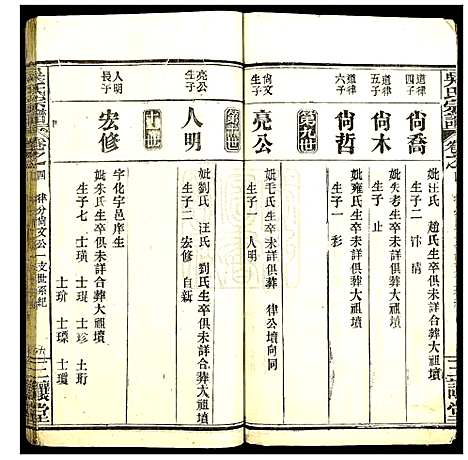 吳氏宗譜
卷之四
道律
四子
尚喬
妣汪氏 趙氏生卒俱未詳合葬大祖墳
生子二 汴 清
道律
五子
尚木
妣失考生卒俱未詳合葬大祖墳
生子 止
道律
六子
尚哲
妣雍氏生卒俱未詳合葬大祖墳
生子一 彩
第九世
尚文
生子
亮公
妣毛氏生卒俱未詳葬 律公墳向同
生子一 人明
第十世
亮公
生子
人明
妣劉氏 汪氏 劉氏生卒俱未詳合葬大祖墳
生子二 宏修 自新
十一世
人明
長子
宏修
字化宇邑庠生
妣朱氏生卒俱未詳合葬大祖墳
生子七 士璜 士珽 士珍 士珩
士玠 士瓊
吳氏宗譜
卷之四
律分尚文公一支世系紀
三讓堂
三讓堂